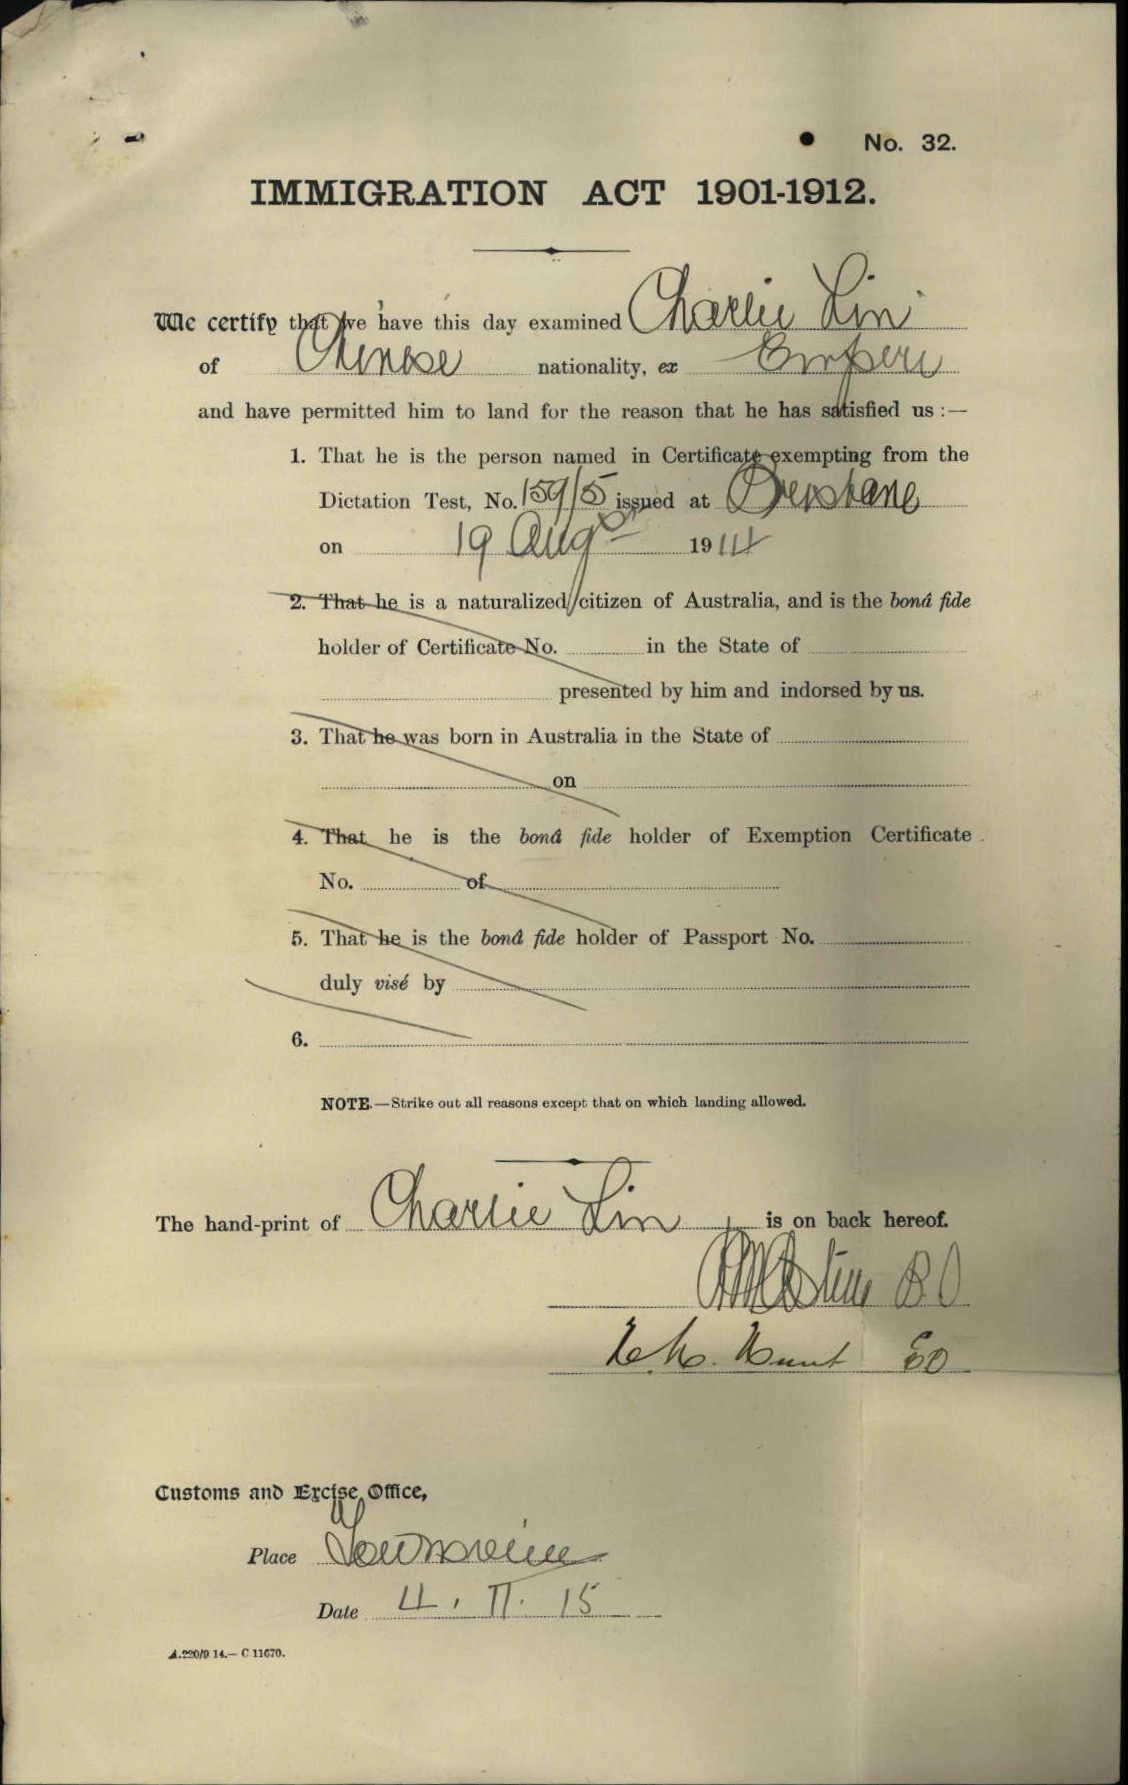 No. 32.
IMMIGRATION ACT 1901-1912.
We certify that we have this day examined Charlie Lin
of Chinese nationality, ex Empire
and have permitted him to land for the reason that he has satisfied us :—
1. That he is the person named in Certificate exempting from the
Dictation Test, No. 159/5 issued at Brisbane
on 19 Aug 1914
2. That he is a naturalized citizen of Australia, and is the boná fide
holder of Certificate No. in the State of
presented by him and indorsed by us.
3. That he was born in Australia in the State of
on
4. That he is the boná fide holder of Exemption Certificate
No. of
5. That he is the boná fide holder of Passport No.
duly visé by
6.
NOTE.—Strike out all reasons except that on which landing allowed.
The hand-print of Charlie Lin is on back hereof.
B.O
Hunt EO
Customs and Excise Office,
Place Townsville
Date 4. 11. 15
A.220/9.14.— C 11670.